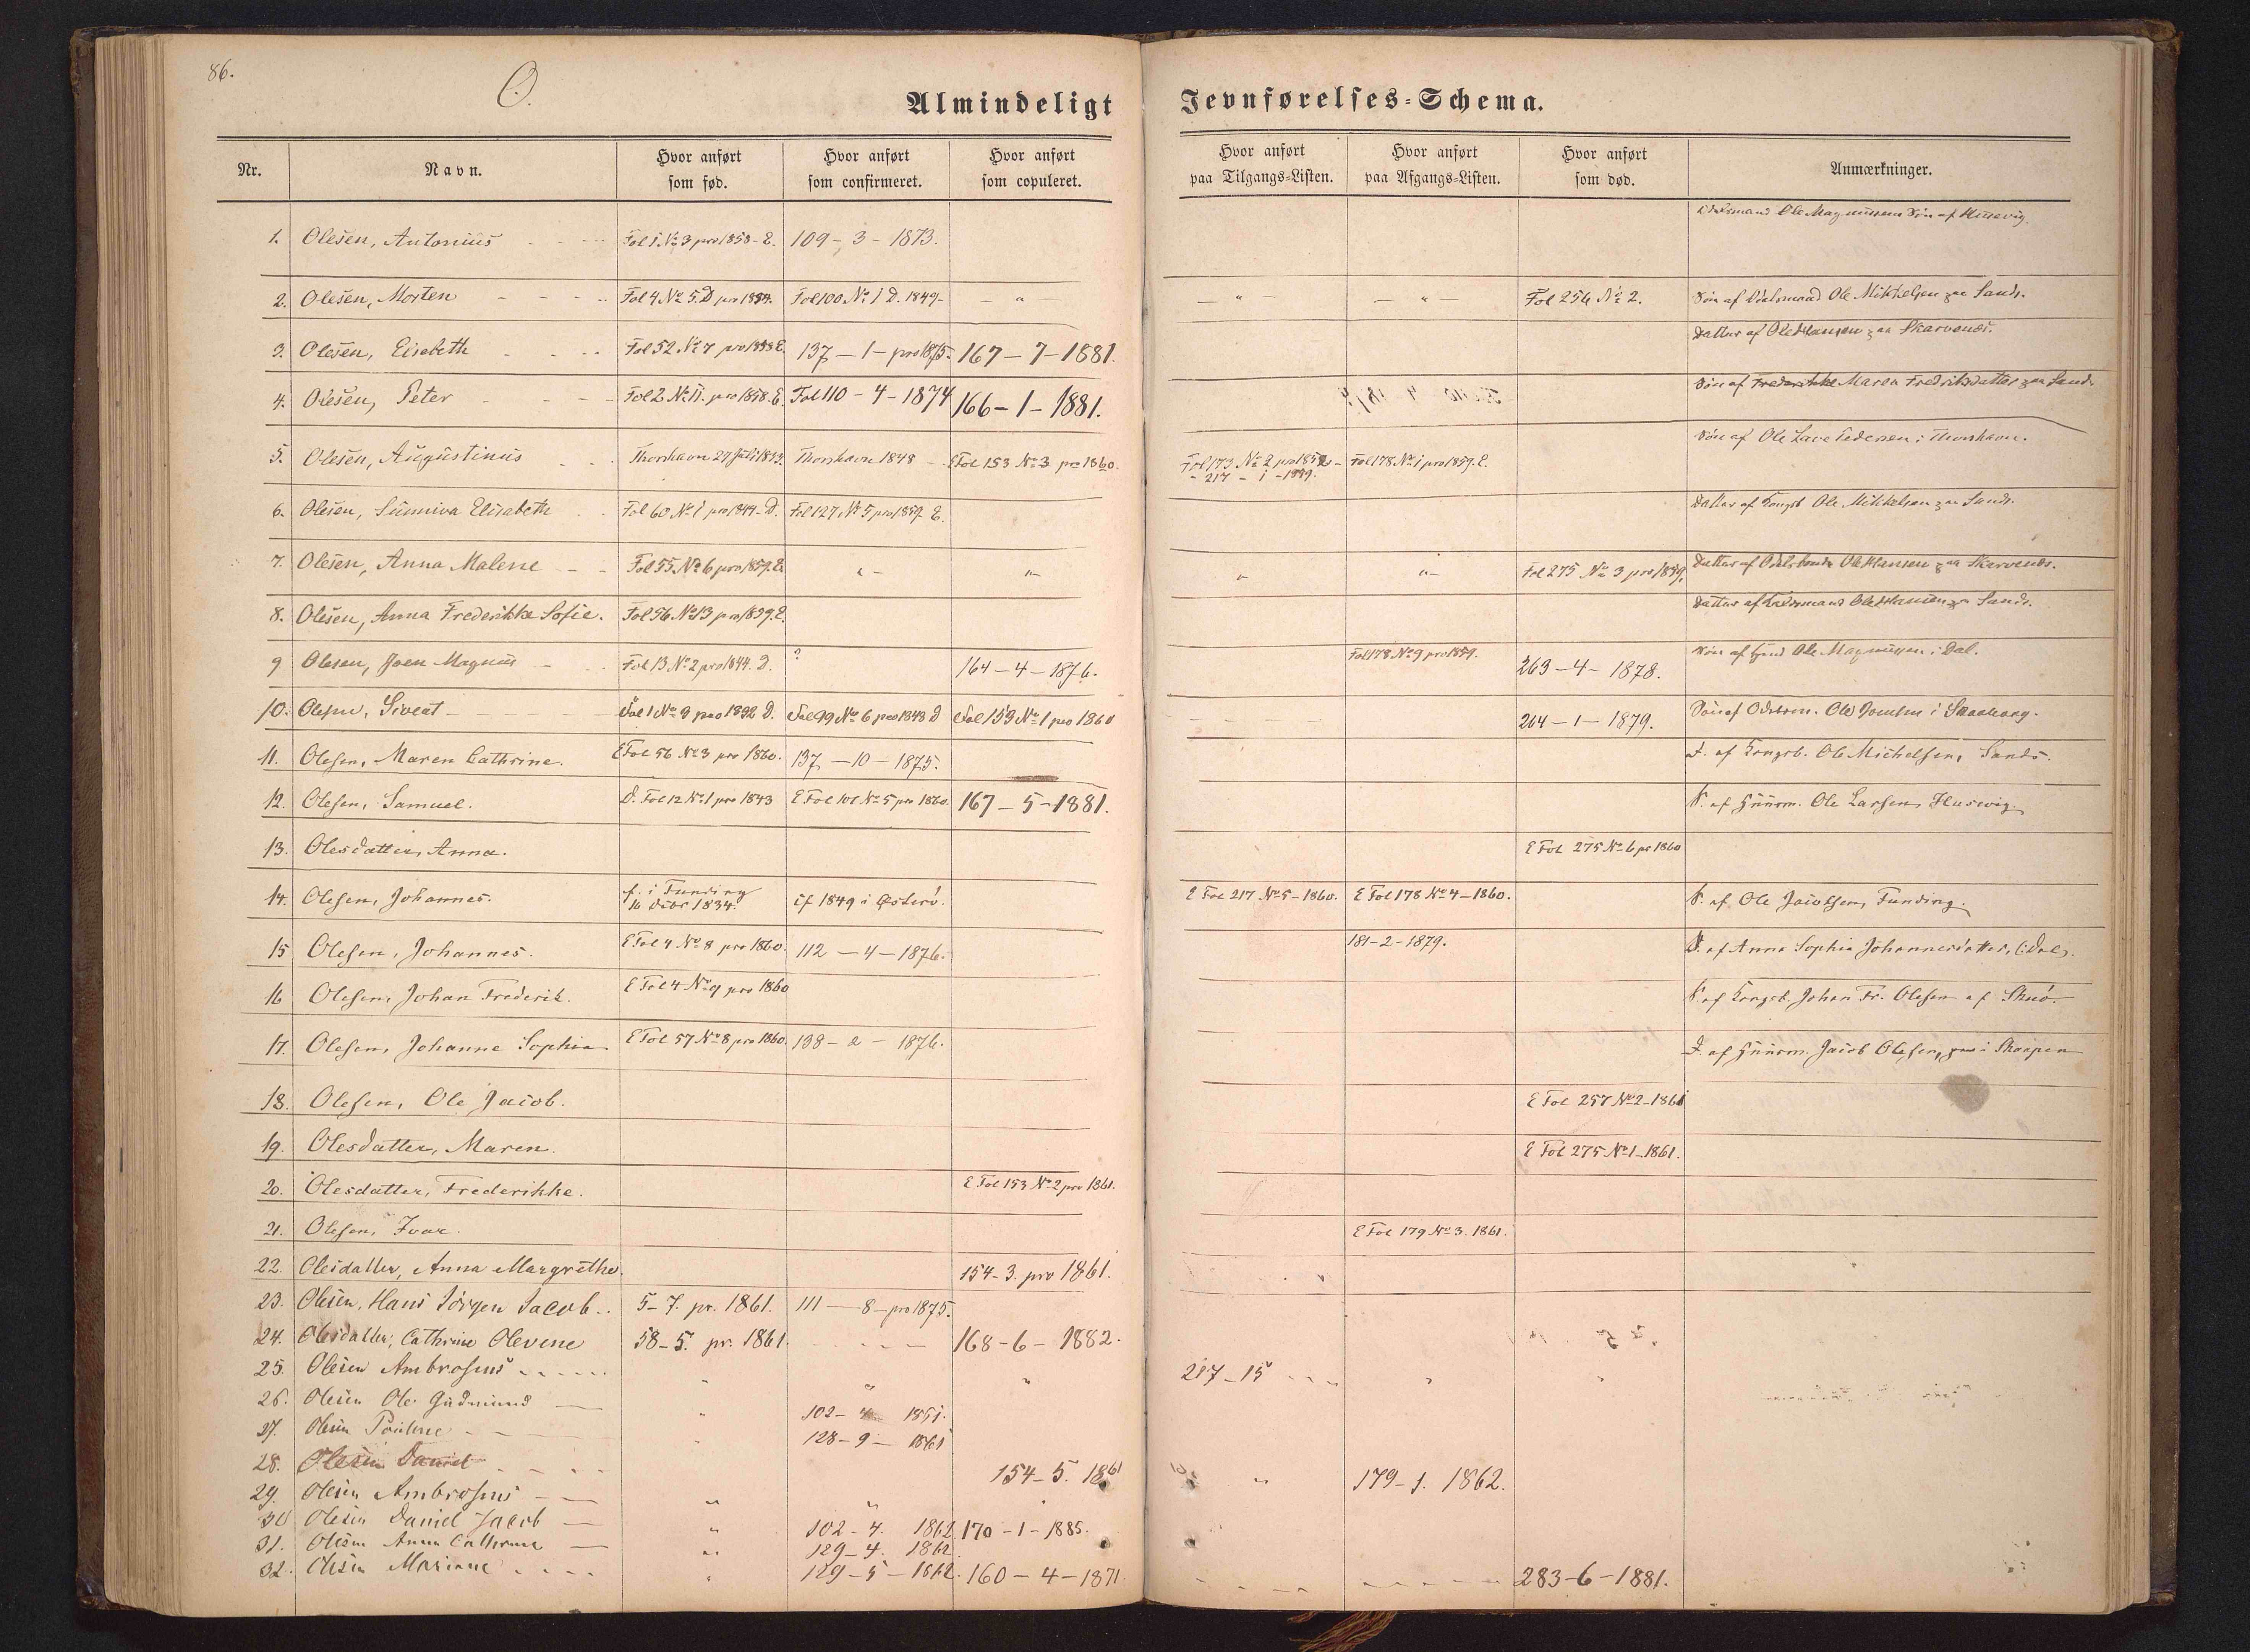 86.
O.
Almindeligt Jevnførelses-Schema.
Nr. Navn. Hvor anført som fød. Hvor anført som confirmeret. Hvor anført som copuleret. Hvor anført paa Tilgangs-Listen. Hvor anført paa Afgangs-Listen. Hvor anført som død. Anmærkninger.
1. Olesen, Antonius Fol 1 No 3 pro 1858 - E. 109 - 3 - 1873. Ole Magnussen Søn af Husevig.
2. Olesen, Morten Fol 4 No 5. D Fol 100 No 1 D. 1849 - - " - " - - " - Fol 256 No 2. Søn af Ole Mikkelsen paa Sand.
3. Olesen, Elsebeth Fol 52 No 7 137 - 1 - pro 1875. 167 - 7 - 1881. Datter af Ole Hansen paa Skarvenæs.
4. Olesen, Peter Fol 2 No 11. pro 1858. E. Fol 110 - 4 - 1874 166 - 1 - 1881. Søn af Maren Fredriksdatter paa Sand.
5. Olesen, Augustinus Thorshavn Thorshavn 1848 E Fol 153 No 3 pro 1860. Fol 173 No 2 - 217 - 1 - 1859. Fol 178 No 1 pro 1859. E. Søn af Ole i Thorshavn.
6. Olesen, Sunniva Elisabeth Fol 60 No 1 pro 1844 - D. Fol 127 No 5 pro 1859 E. Datter af Kongsb Ole Mikkelsen paa Sand.
7. Olesen, Anna Malene Fol 55. No 6 pro 1859. E. " - " - " " - Fol 275 No 3 pro 1859, Datter af Odelsbonde Ole Hansen paa Skarvenæs.
8. Olesen, Anna Frederikke Sofie. Fol 56. No 13 pro 1859. E. Datter af Ole Hansen paa Sand.
9 Olesen, Joen Magnus Fol 13 No 2 pro 1844. D. ? 164 - 4 - 1876. Fol 178 No 9 pro 1859. 263 - 4 - 1878. Søn af Ole Magnussen i Dal.
10. Olesen, Sivert Fol 1 No 9 pro 1832 D. Fol 99 No 6 pro 1848 D Fol 153 No 1 pro 1860 264 - 1 - 1879. Søn af Ole Joensen i
11. Olesen, Maren Cathrine. E Fol 56 No 3 pro 1860. 137 - 10 - 1875. D. af Kongsb. Ole Michelsen, Sand.
12. Olesen, Samuel. D. Fol 12 No 1 pro 1843 E Fol 101 No 5 pro 1860. 167 - 5 - 1881. S. af Huusm. Ole Larsen, Husevig.
13. Olesdatter, Anna. E Fol 275 No 6 pr 1860
14. Olesen, Johannes. f. i Funding 16 Debr 1834. cf 1849 i Østerø. E Fol 217 No 5 - 1860. E Fol 178 No 4 - 1860. S. af Ole Jacobsen, Funding.
15 Olesen, Johannes. E Fol 4 No 8 pro 1860. 112 - 4 - 1876. 181 - 2 - 1879. S. af Anna Sophia Johannesdatter, (Dal).
16 Olesen, Johan Frederik. E Fol 4 No 9 pro 1860 S. af Kongsb. Johan Fr. Olesen af Skuø.
17. Olesen, Johanne Sophia E Fol 57 No 8 pro 1860. 138 - 2 - 1876. D. af Huusm. Jacob Olesen, i Skaapen
18. Olesen, Ole Jacob. E Fol 257 No 2 - 1861
19. Olesdatter, Maren. E Fol 275 No 1 - 1861.
20. Olesdatter, Frederikke. E Fol 153 No 2 pro 1861.
21. Olesen, Ivar. E Fol 179 No 3. 1861.
22. Olesdatter, Anna Margrethe. 154 - 3. pro 1861.
23. Olesen, Hans Jørgen Jacob. 5 - 7. pr. 1861. 111 - 8 - pro 1875.
24. Olesdatter, Cathrine Olevine 58 - 5. pr. 1861. 168 - 6 - 1882.
25. Olesen Ambrosius " " " 217 - 15 " "
26. Olesen Ole Gudmund " 102 - 4 1861.
27. Olesen Pauline " 128 - 9 - 1861
28. Olesen Daniel 154 - 5. 1861
29. Olesen Ambrosius " " " 179 - 1. 1862.
30 Olesen Daniel Jacob " 102 - 4. 1862 170 - 1 - 1885.
31. Olesen Anna Cathrine " 129 - 4. 1862.
32. Olesen Marianne " 129 - 5 - 1862. 160 - 4 - 1871 283 - 6 - 1881.